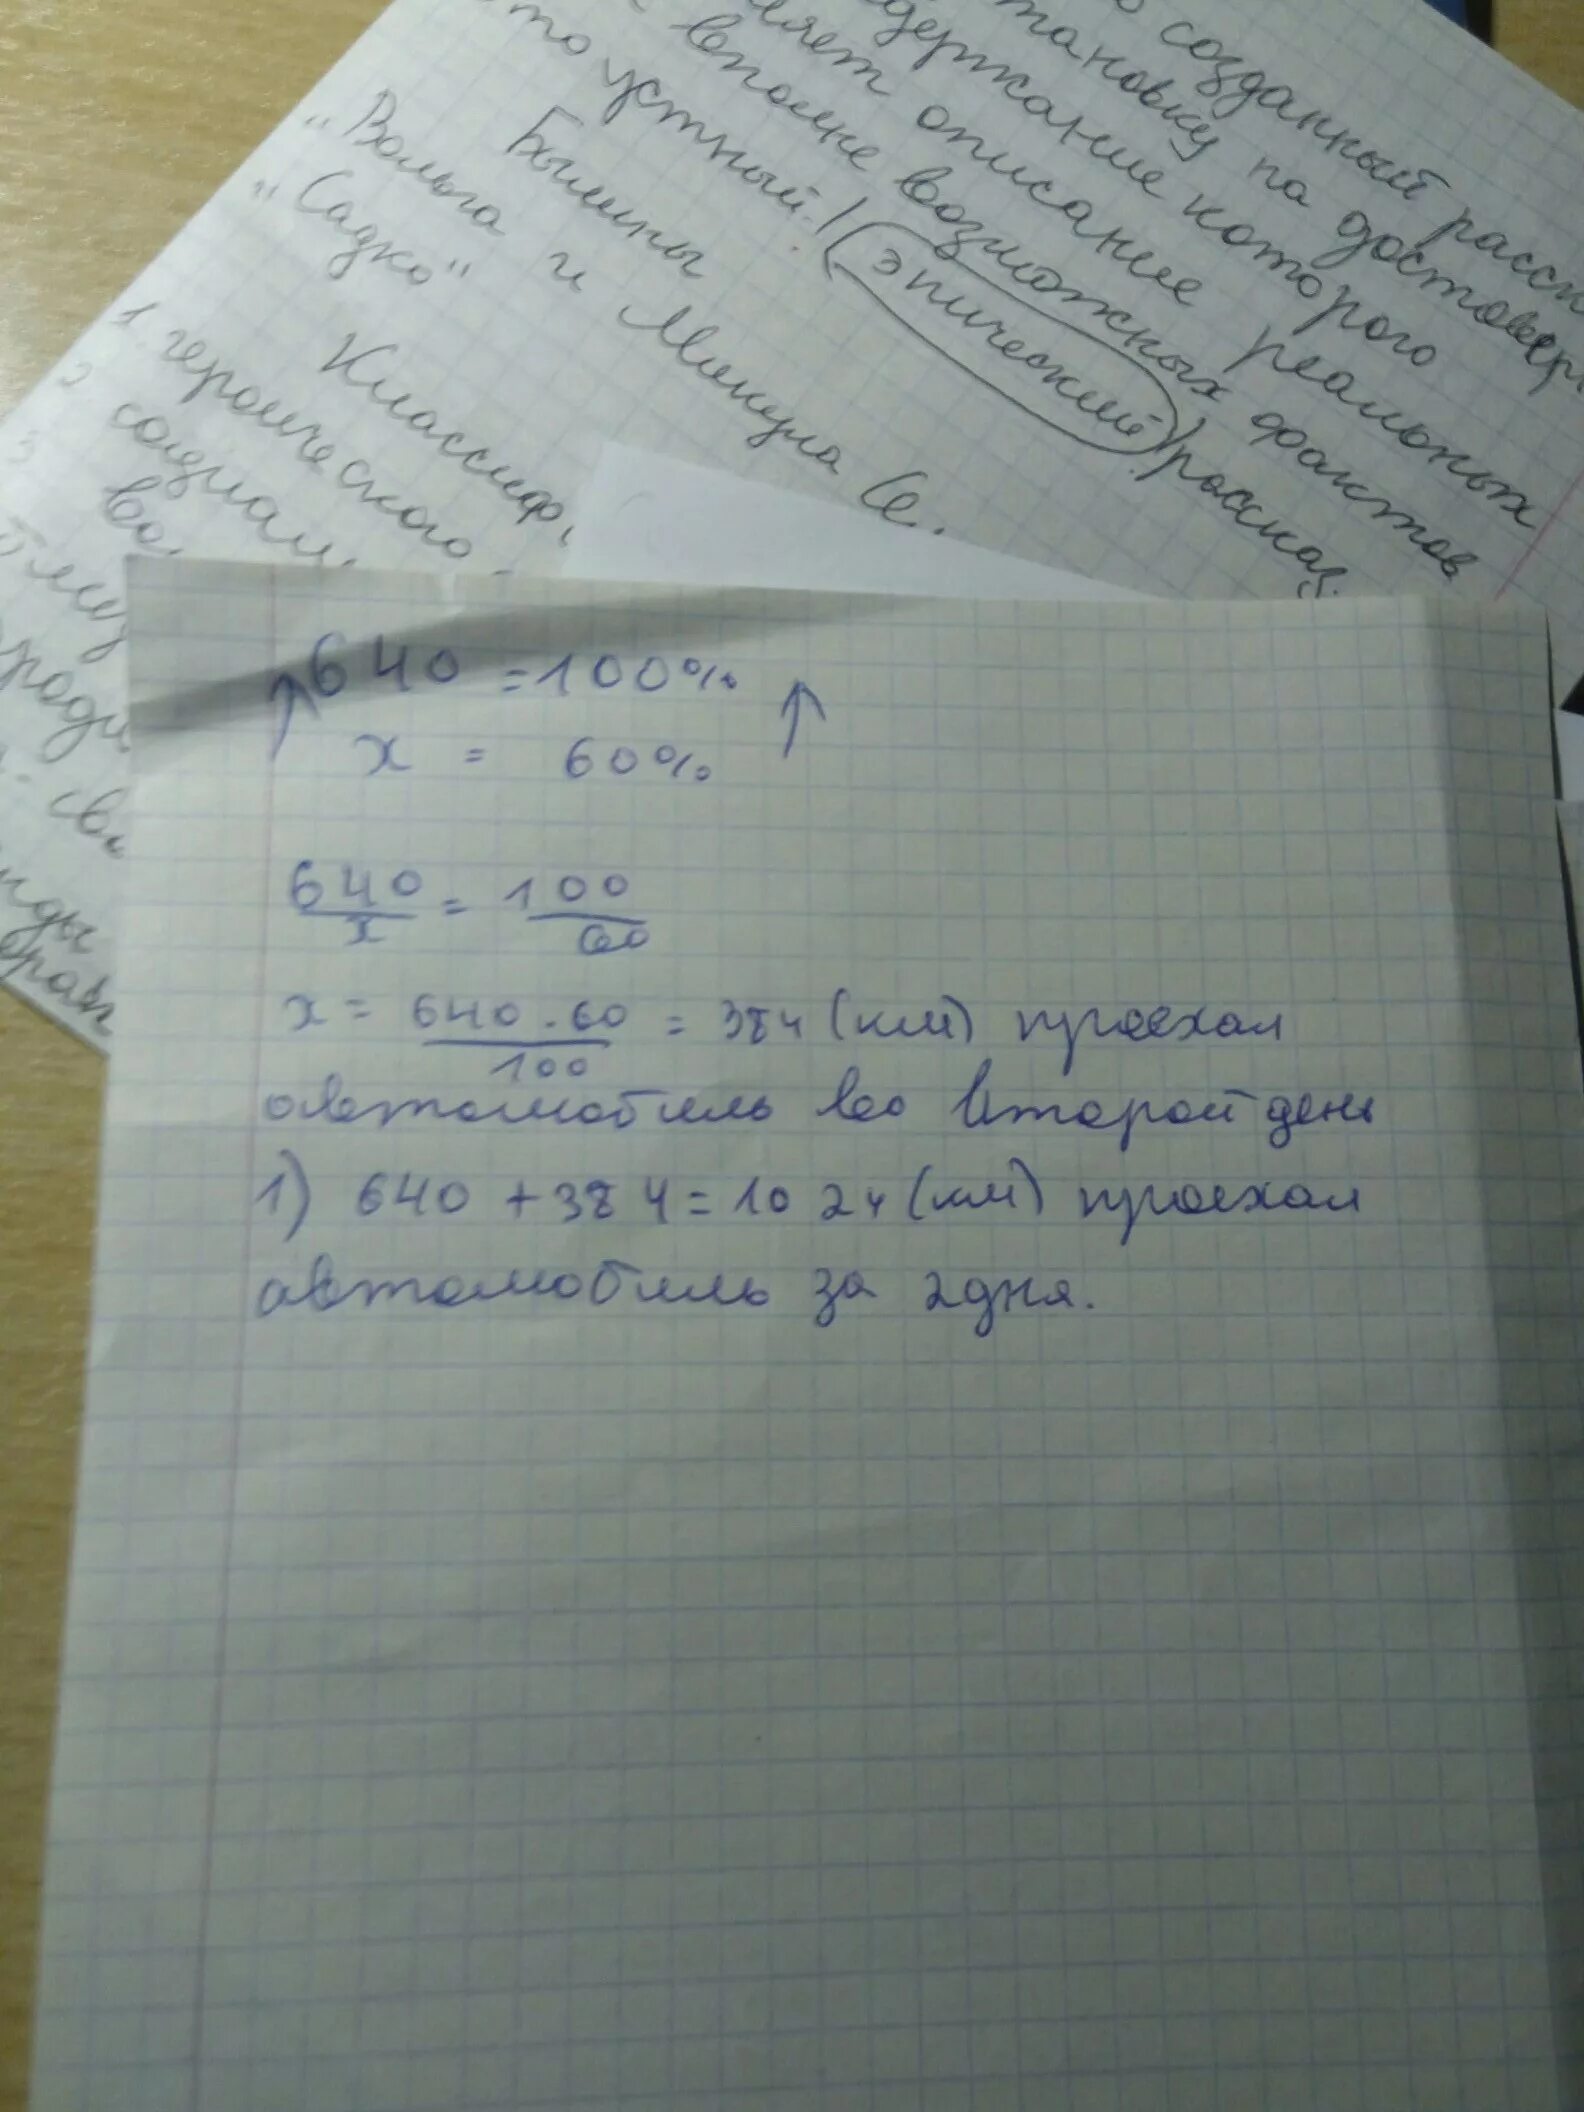 созданный
тановку по достовер
держание которого
ляет описание реальных
вполне возможных фактов
то устный (эпический) рассказ.
Былины
"Вольга и Микула Се.
"Садко"
Классиф
1. героического
2 социал
3
640 = 100%
х = 60%
640/х = 100/60
х = 640·60/100 = 384 (км) проехал
автомобиль во второй день
1) 640 + 384 = 1024 (км) проехал
автомобиль за 2 дня.